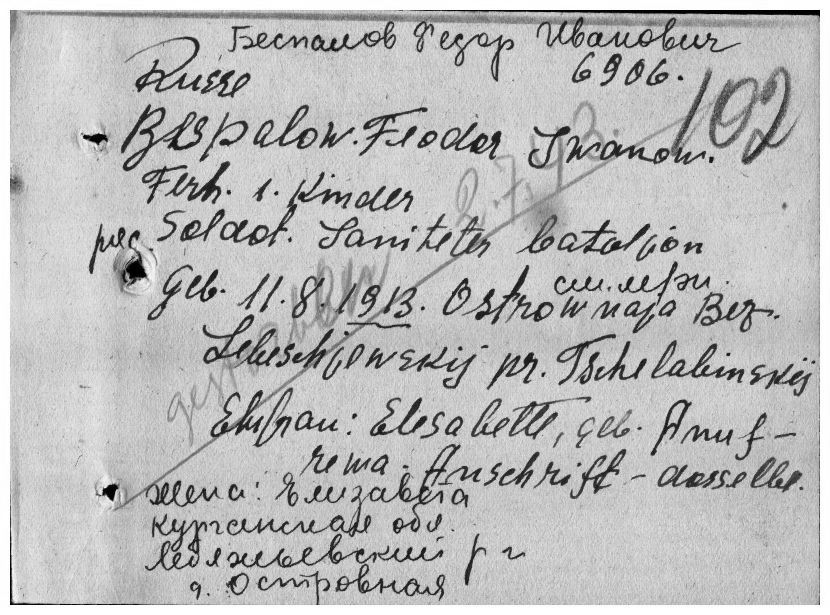 Беспалов Федор Иванович
Russe 6906.
102
Bespalow. Feodor Iwanow.
Ferh. 1. Kinder
2.7.43.
рус. Soldat. Saniteter batalion
gestorben
Geb. 11.8.1913. Ostrownaja Bez.
Lebeschjewskij pr. Tschelabinskij
Ehfrau: Elesabette, geb. Anuf-
rewa. Anschrift - dasselbe.
жена: Елизавета
Курганская обл.
Лебяжьевский р
д. Островная